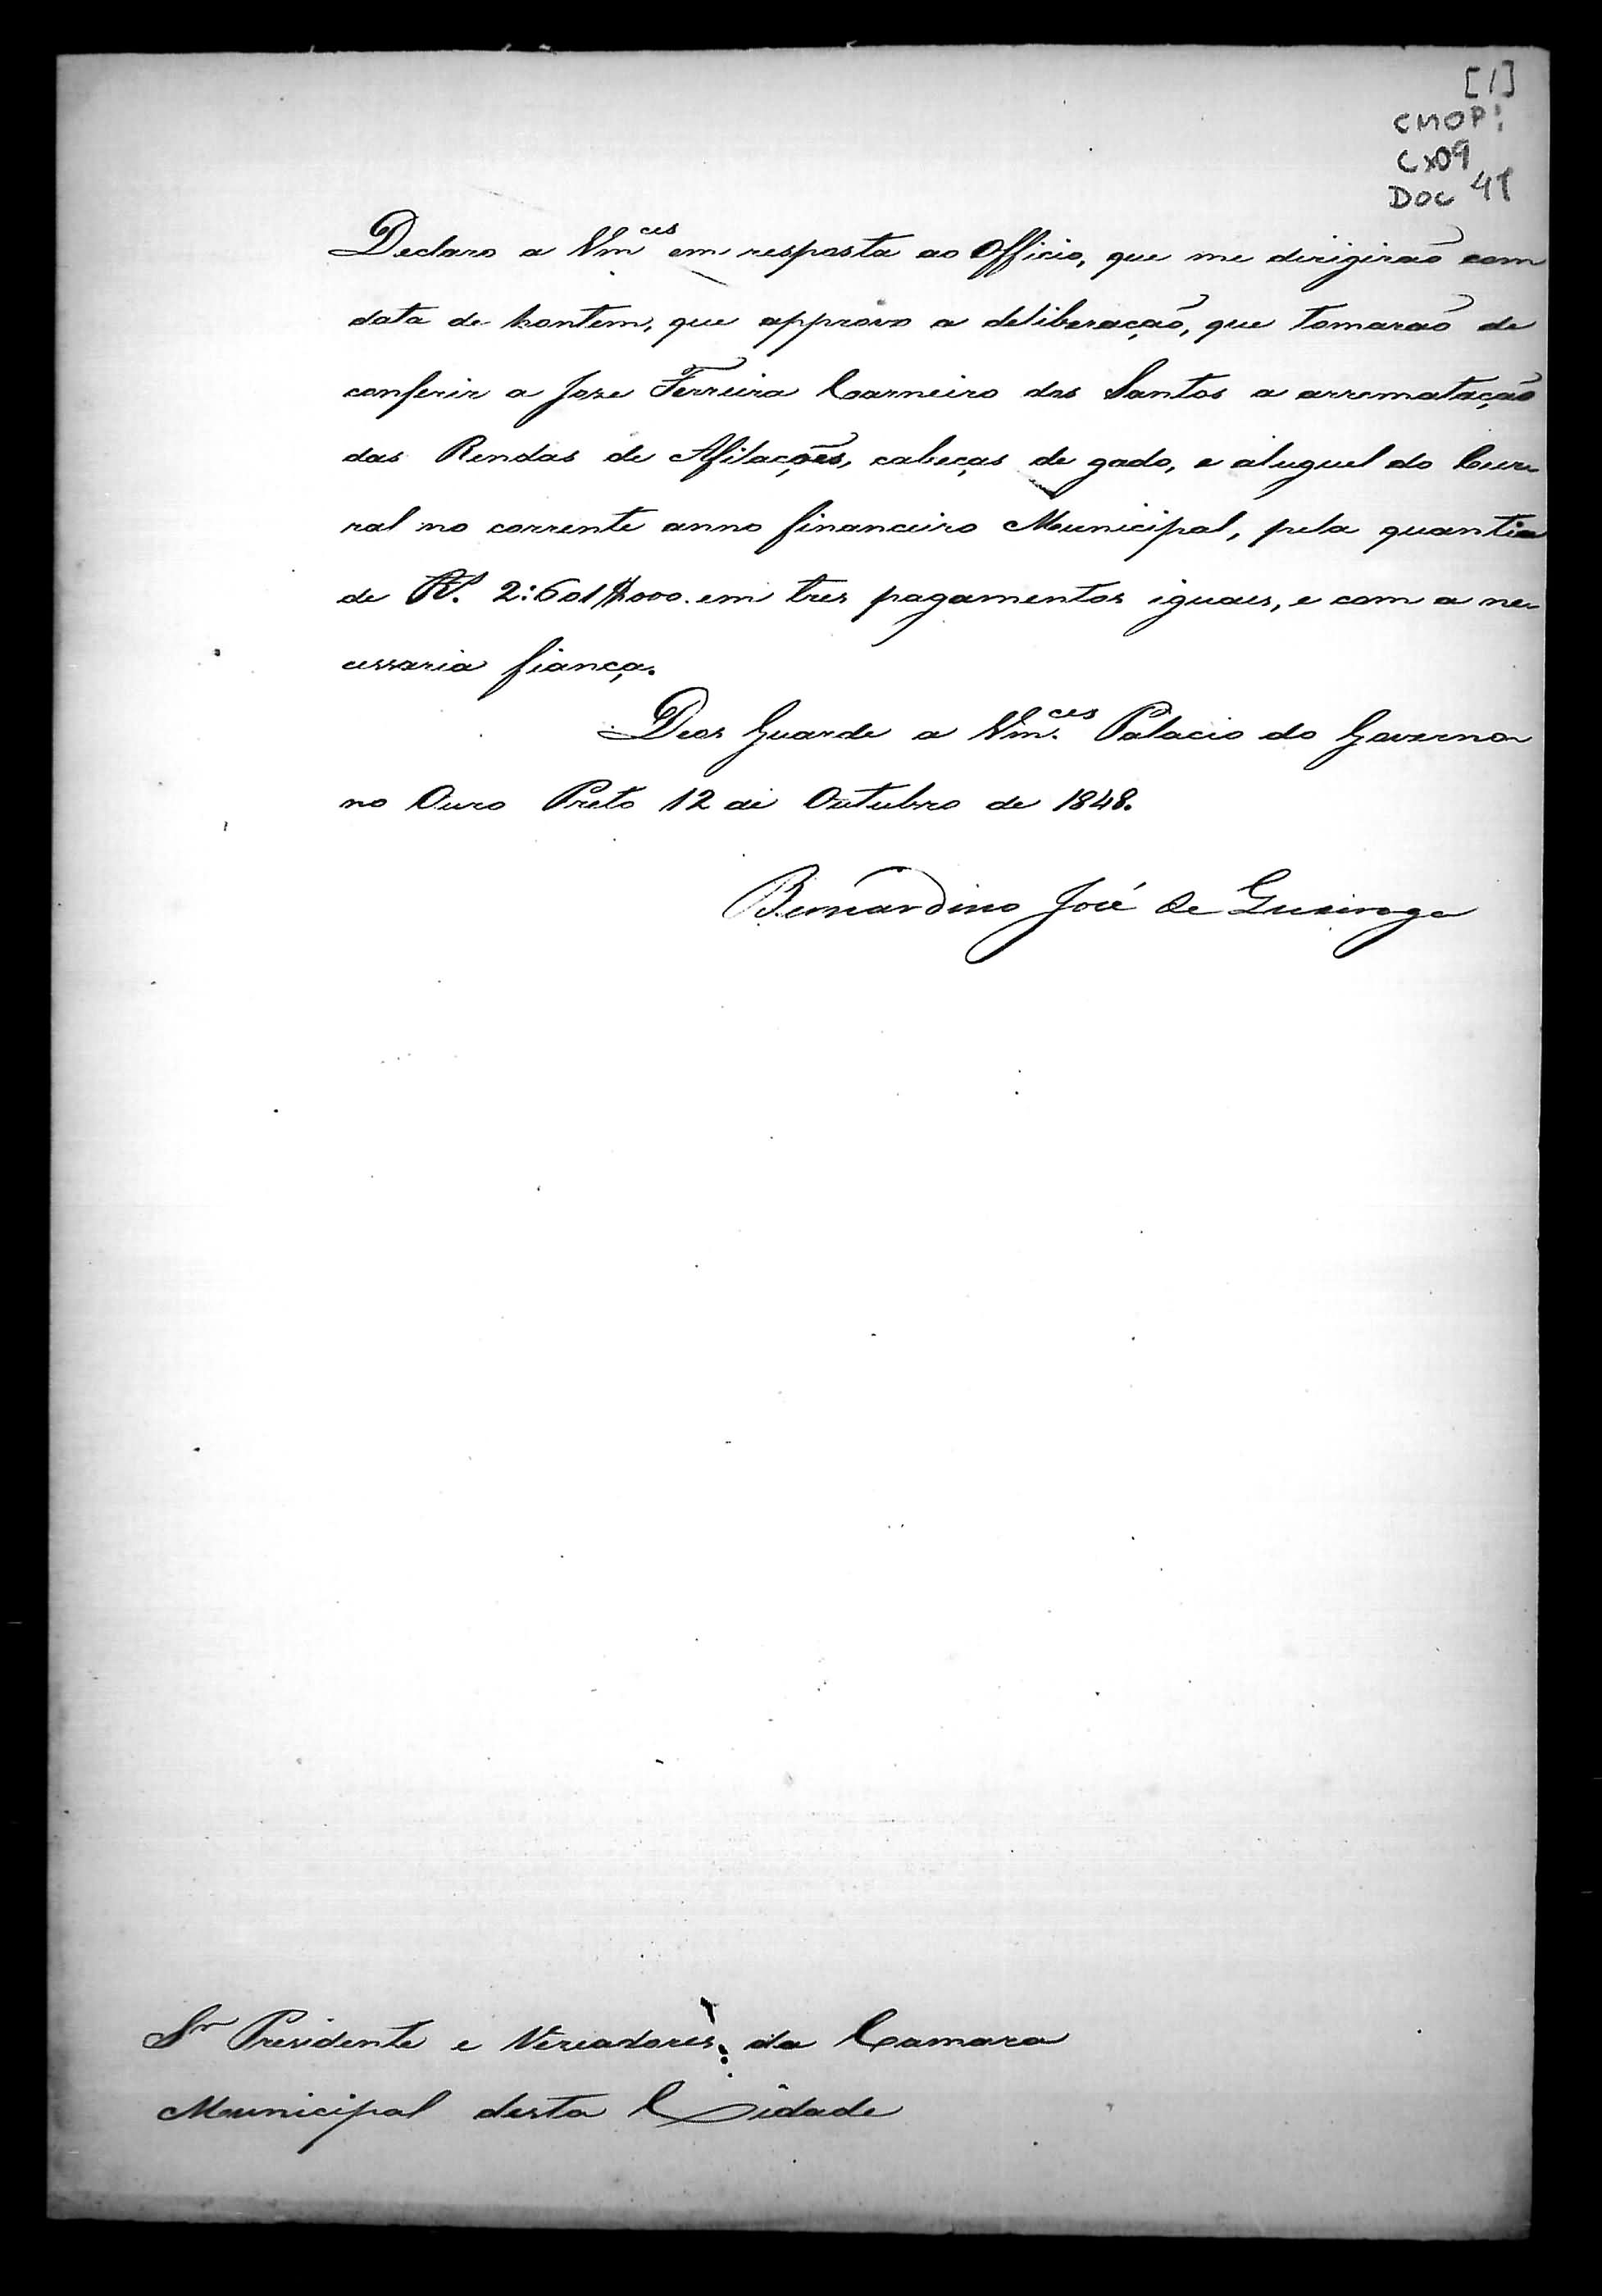 [1]
CMOP:
Cx09
DOC 41
Declaro a Vm^ces em resposta ao Officio, que me dirigirão com
data de hontem, que approvo a deliberação, que tomarão de
conferir a Joze Ferreira Carneiro dos Santos a arrematação
das Rendas de Afilações, cabeças de gado, e aluguel do Cur
ral no corrente anno financeiro Municipal, pela quantia
de R^s. 2:601$000. em tres pagamentos iguaes, e com a ne
cessaria fiança.
Deos Guarde a Vm.^ces Palacio do Governo
no Ouro Preto 12 de Outubro de 1848.
Bernardino José de Queiroga
S^r Presidente e Vereadores da Camara
Municipal desta Cidade